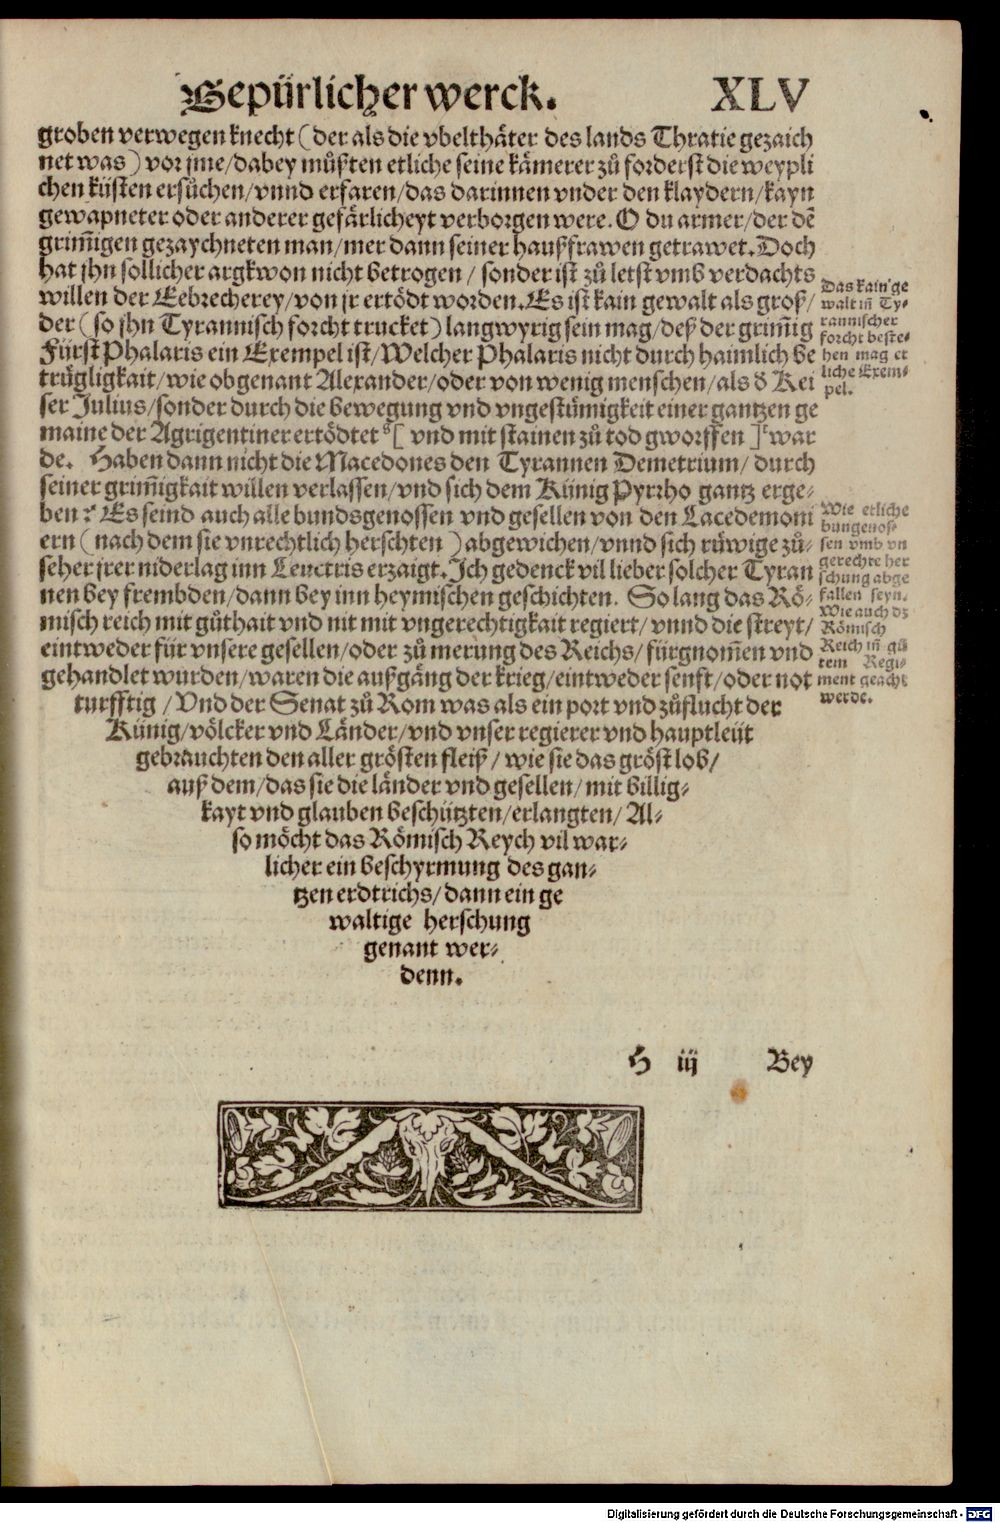 Gepürlicher werck. XLV
groben verwegen knecht (der als die vbelthäter des lands Thratie gezaich
net was) vor jme/dabey müßten etliche seine kämerer zů forderst die weypli
chen küsten ersůchen/vnnd erfaren/das darinnen vnder den klaydern/kayn
gewapneter oder anderer gefärlicheyt verborgen were. O du armer/der dē
grim̄igen gezaychneten man/mer dann seiner haußfrawen getrawet. Doch
hat jhn sollicher argkwon nicht betrogen / sonder ist zů letst vmb verdachts
willen der Eebrecherey/von jr ertödt worden. Es ist kain gewalt als groß/
der (so jhn Tyrannisch forcht trucket) langwyrig sein mag/deß der grim̄ig
Fürst Phalaris ein Exempel ist/Welcher Phalaris nicht durch haimlich be
trügligkait/wie obgenant Alexander/oder von wenig menschen/als d̕ Kei
ser Julius/sonder durch die bewegung vnd vngestümigkeit einer gantzen ge
maine der Agrigentiner ertödtet [ vnd mit stainen zů tod gworffen ] war
de. Haben dann nicht die Macedones den Tyrannen Demetrium/ durch
seiner grim̄igkait willen verlassen/vnd sich dem Künig Pyrrho gantz erge⸗
ben? Es seind auch alle bundsgenossen vnd gesellen von den Lacedemoni
ern (nach dem sie vnrechtlich herschten ) abgewichen/vnnd sich rüwige zů⸗
seher jrer niderlag inn Leuctris erzaigt. Ich gedenck vil lieber solcher Tyran
nen bey frembden/dann bey inn heymischen geschichten. So lang das Rö⸗
misch reich mit gůthait vnd nit mit vngerechtigkait regiert/vnnd die streyt/
eintweder für vnsere gesellen/oder zů merung des Reichs/ fürgnom̄en vnd
gehandlet wurden/waren die außgäng der krieg/eintweder senft/oder not
turfftig /Vnd der Senat zů Rom was als ein port vnd zůflucht der
Künig/völcker vnd Länder/vnd vnser regierer vnd hauptleüt
gebrauchten den aller grösten fleiß / wie sie das gröst lob/
auß dem/das sie die länder vnd gesellen/ mit billig⸗
kayt vnd glauben beschützten/erlangten/ Al⸗
so möcht das Römisch Reych vil war⸗
licher ein beschyrmung des gan⸗
tzen erdtrichs/dann ein ge
waltige herschung
genant wer⸗
denn.
Das kain ge
walt in̄ Ty⸗
rannischer
forcht beste⸗
hen mag et
liche Exem⸗
pel.
Wie etliche
bungenos⸗
sen vmb vn
gerechte her
schung abge
fallen seyn.
Wie auch dz
Römisch
Reich in̄ gů
tem Regi⸗
ment geacht
werde.
H iij Bey
Digitalisierung gefördert durch die Deutsche Forschungsgemeinschaft - DFG